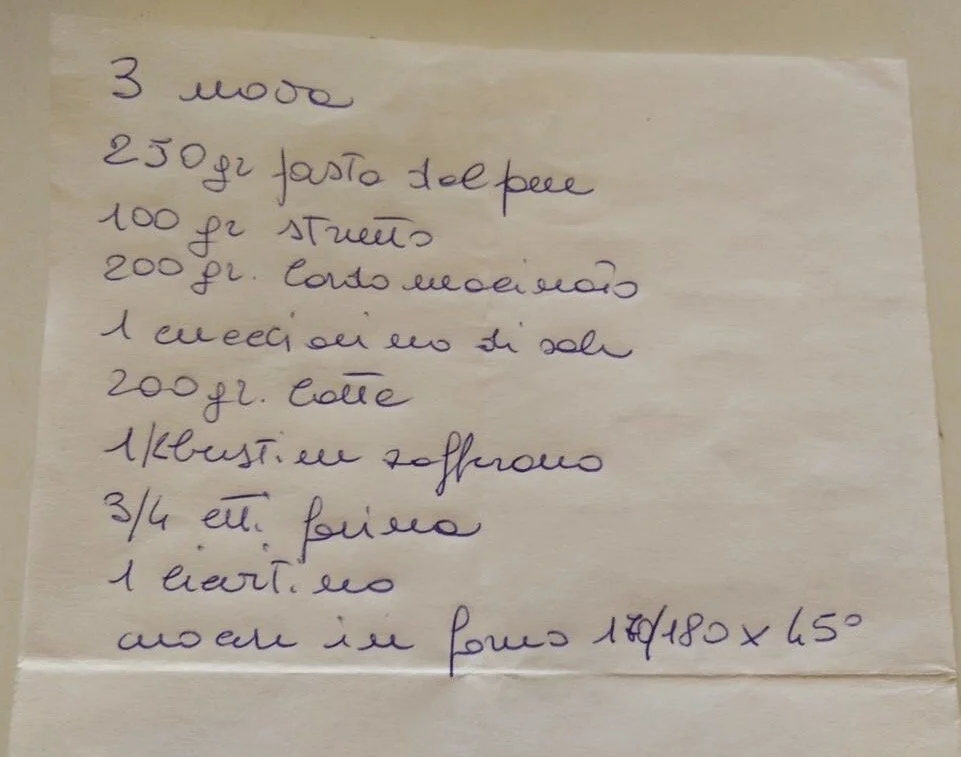 3 uova
250 gr pasta del pane
100 gr strutto
200 gr. lardo macinato
1 cucchiaino di sale
200 gr. latte
zafferano
3/4 etti farina
1
cuocere in forno 170/180 x 45°